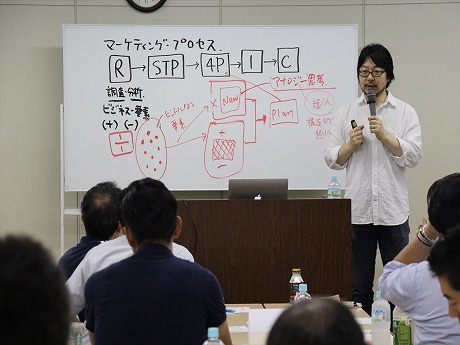 マーケティング・プロセス
R → STP → 4P → I → C
調査・分析
ビジネス・要素
(+) (-)
ヒントになる
要素
× New
アナロジー思考
Plan